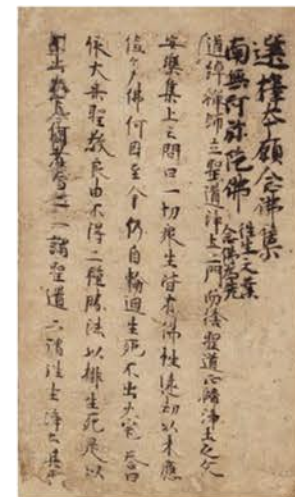 選擇本願念佛集
南無阿弥陀佛
往生之業
念佛為先
道綽禅師立聖道浄土二門而捨聖道正歸浄土之文
安樂集上云問曰一切衆生皆有佛性遠劫以来應
値多佛何因至今仍自輪廻生死不出火宅答曰
依大乗聖教良由不得二種勝法以排生死是以
不出火宅何者為二一謂聖道二謂往生浄土其